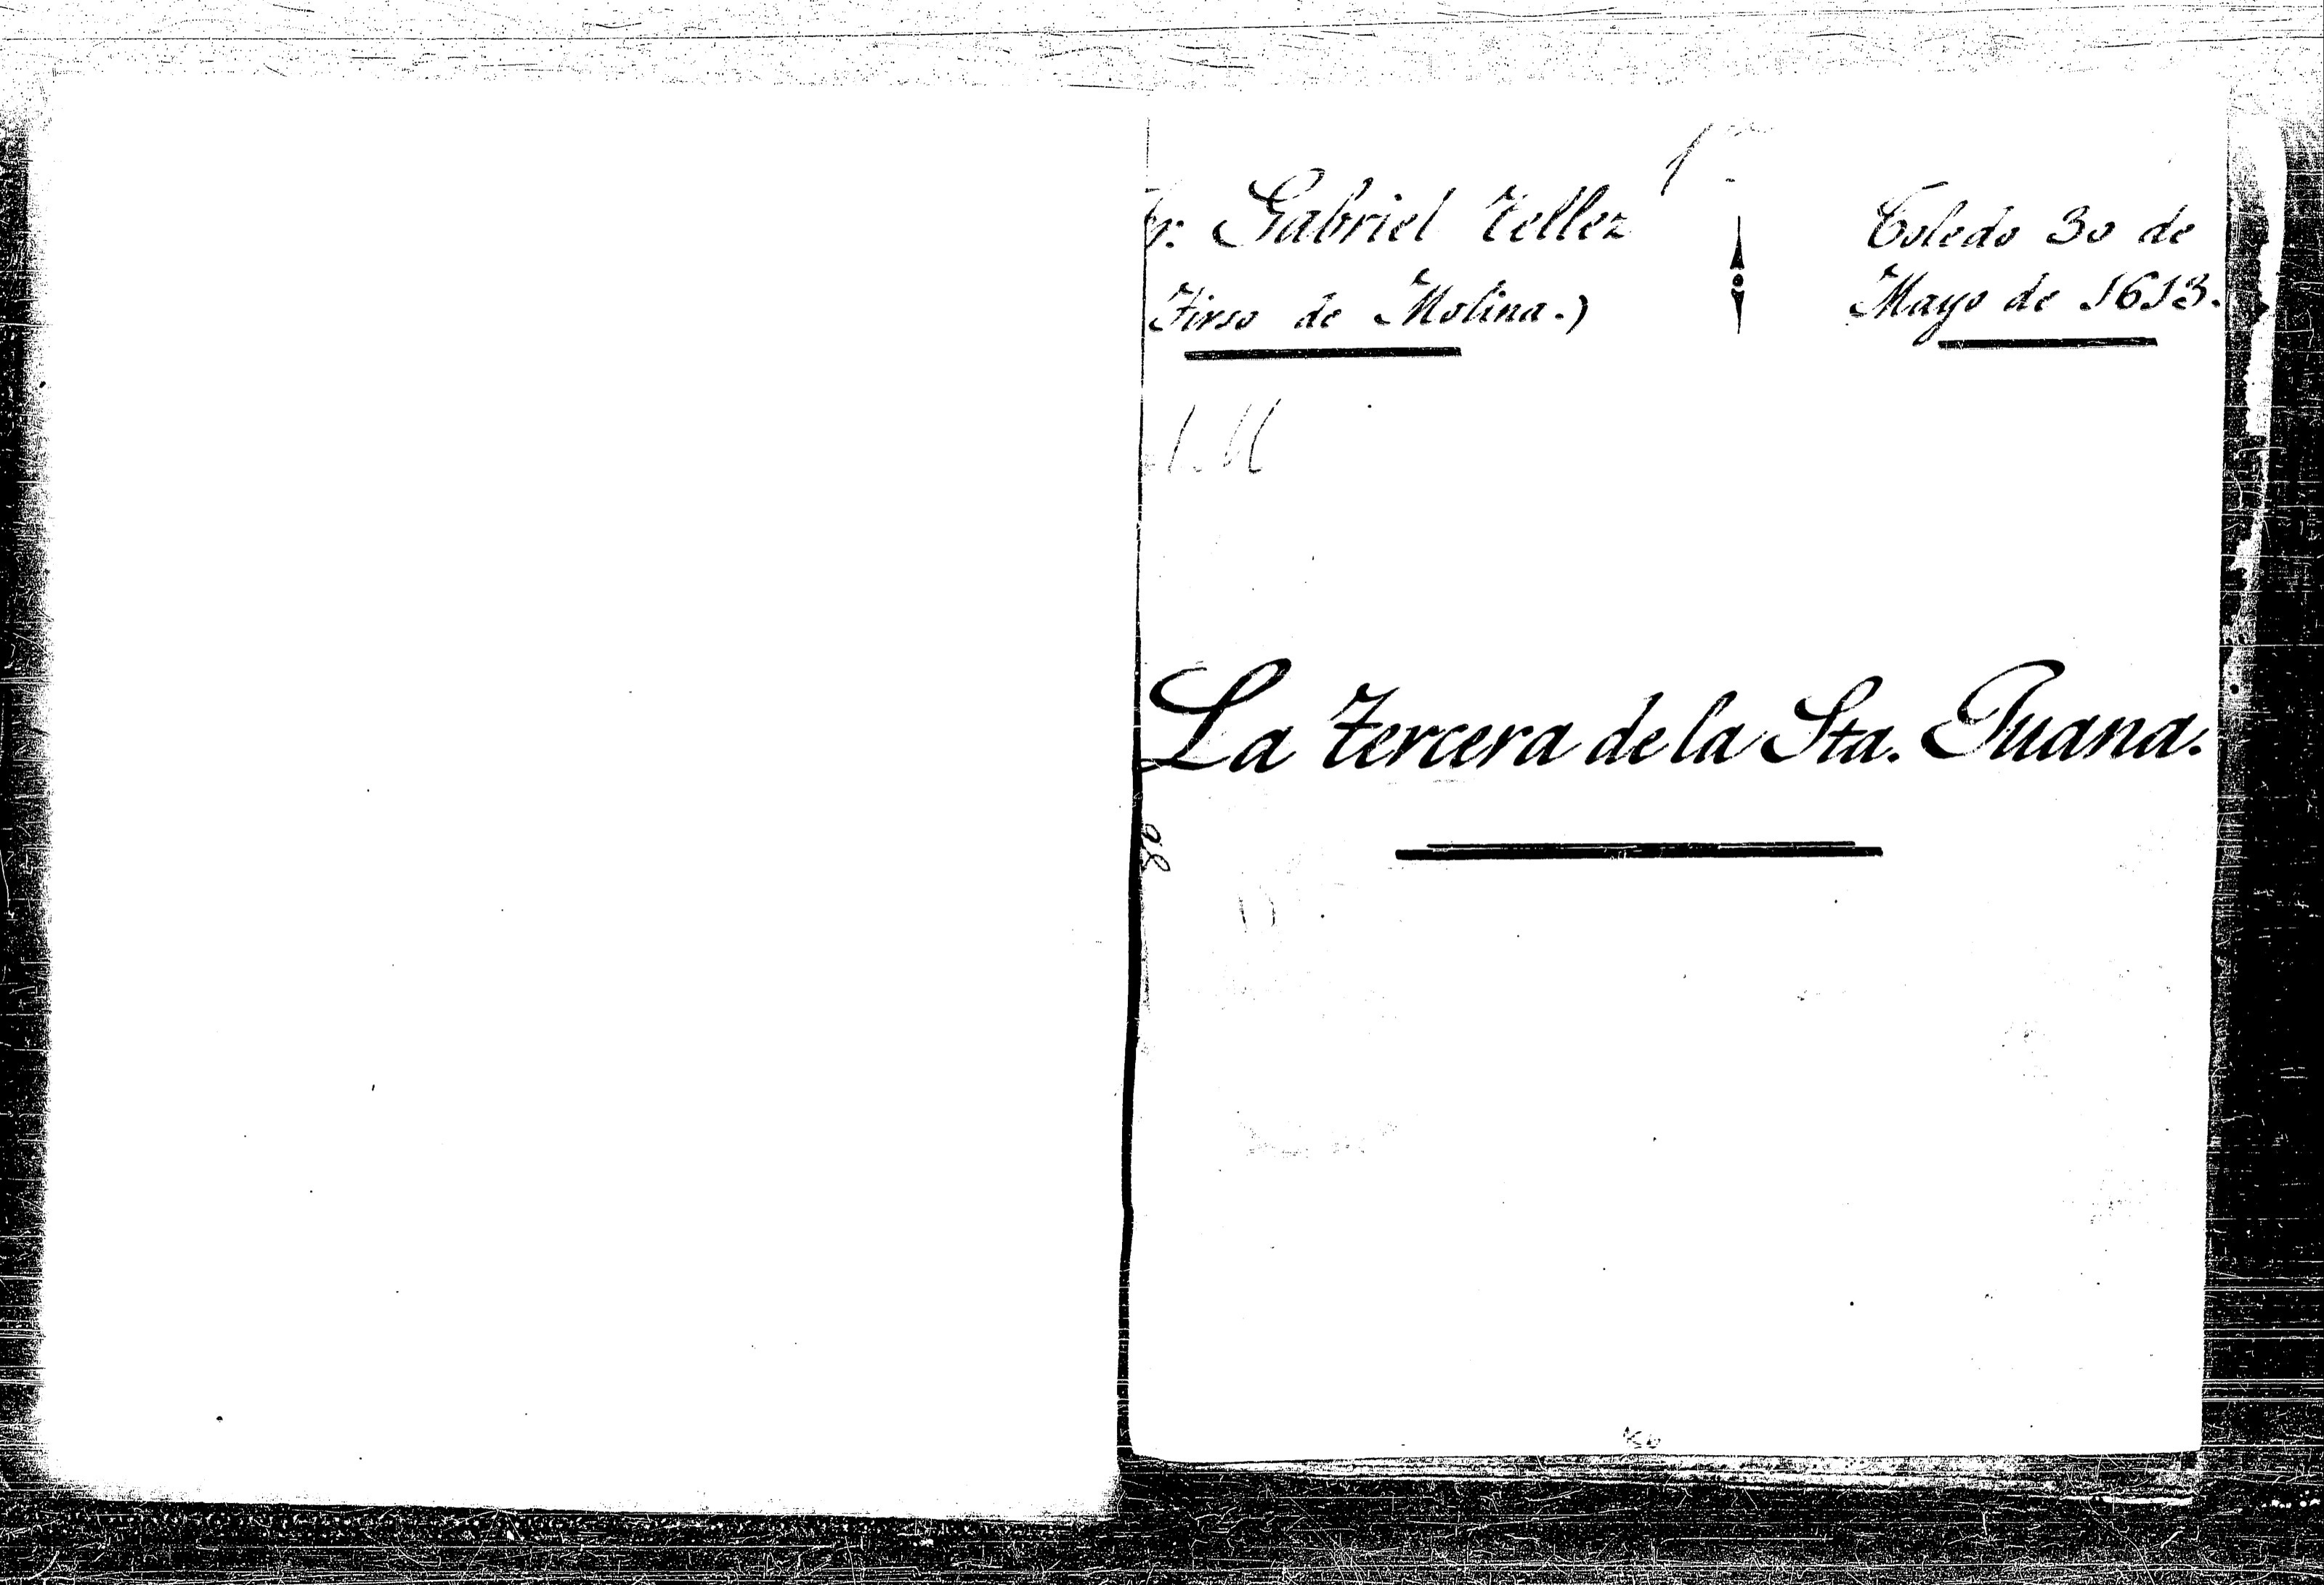 Fr: Gabriel Tellez
Tirso de Molina.)
Toledo 30 de
Mayo de 1613.
La tercera de la Sta. Juana.